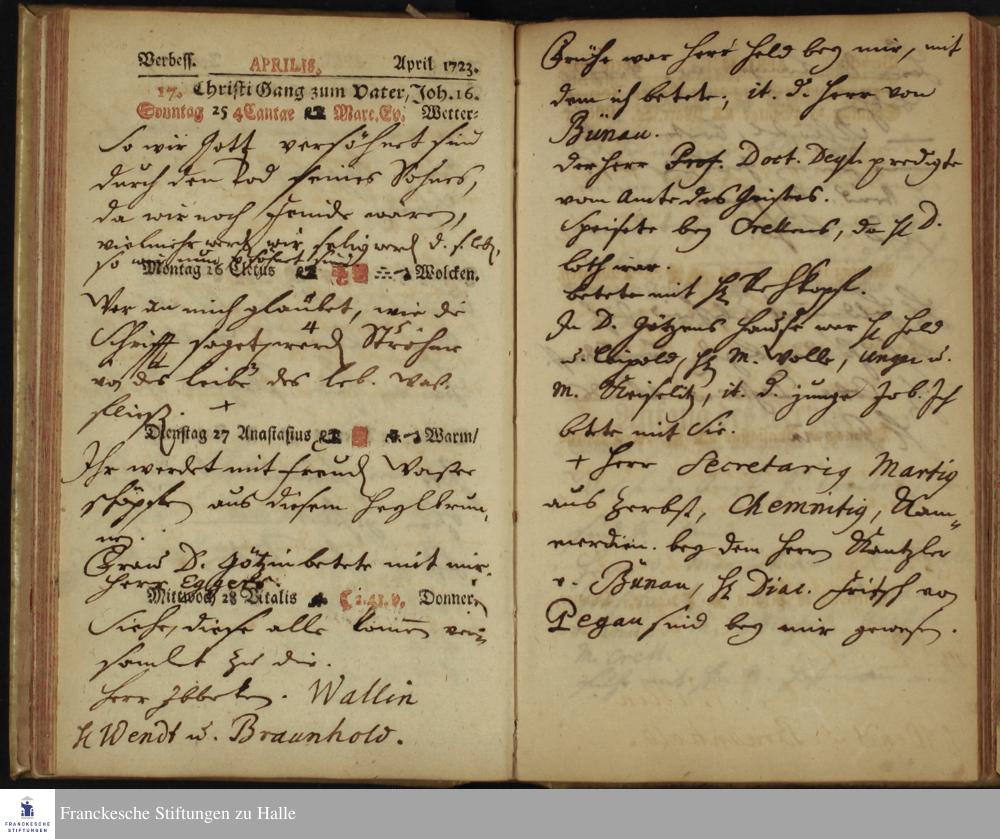 Verbess. APRILIS. April 1723.
17. Christi Gang zum Vater, Joh. 16.
Sonntag 25 4 Cantae Marc. Ev. Wetter-
So wir Gott versöhnet sind
durch den Tod seines Sohnes,
da wir noch Feinde waren,
vielmehr werden wir selig werd. d. s. leb.,
so wir nun versöhnet sind
Montag 26 Cletus Wolcken.
Wer an mich glaubet, wie die
Schrifft saget, werden Ströhme
von des leibe des leb. Waß.
fließ. +
Dienstag 27 Anastasius Warm/
Ihr werdet mit Freuden Waßer
schöpffen aus diesem Heylbrun,
nen.
Frau D. Götzin betete mit mir.
Herr Eggers.
Mittwoch 28 Vitalis C 1.41. v. Donner,
Siehe, diese alle kommen ver-
samlt zu dir.
Herr Ibbeken. Wallin
H Wendt u. Braunhold.
Frühe war Herr Held bey mir, mit
dem ich betete, it. d. Herr von
Bünau.
der Herr Prof. Doct. Deyl. predigte
vom Amte des Geistes.
Speisete bey Crellens, da H D.
loth war.
betete mit H Rehkopf.
In D. Götzens Hause war H Held
u. Leipold, H M. Wolle, Unger u.
M. , it. d. junge Job. Ich
betete mit Sie.
+ Herr Secretarig Martig
aus Zerbst, Chemnitig, Kam-
merdien. bey dem Herrn Kantzler
v. Bünau, H Diac. Fritsch von
Pegau sind bey mir gewesen.
Franckesche Stiftungen zu Halle
FRANCKESCHE
STIFTUNGEN